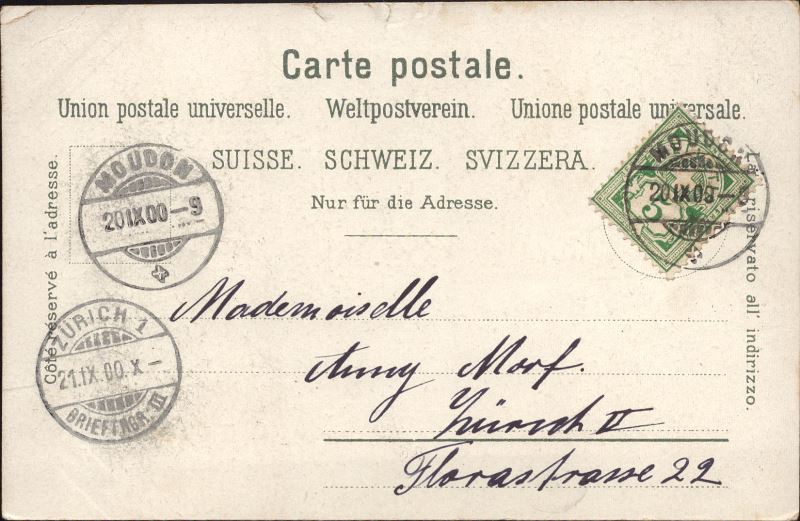 Carte postale.
Union postale universelle. Weltpostverein. Unione postale universale.
SUISSE. SCHWEIZ. SVIZZERA.
Nur für die Adresse.
Côté réservé à l'adresse.
Lato riservato all' indirizzo.
MOUDON
20 IX 00-9
X
MOUDON
20 IX 00-9
5
ZÜRICH 1
21. IX. 00. X-
BRIEFTRGR. III
Mademoiselle
Anny Morf.
Zürich II
Florastrasse 22